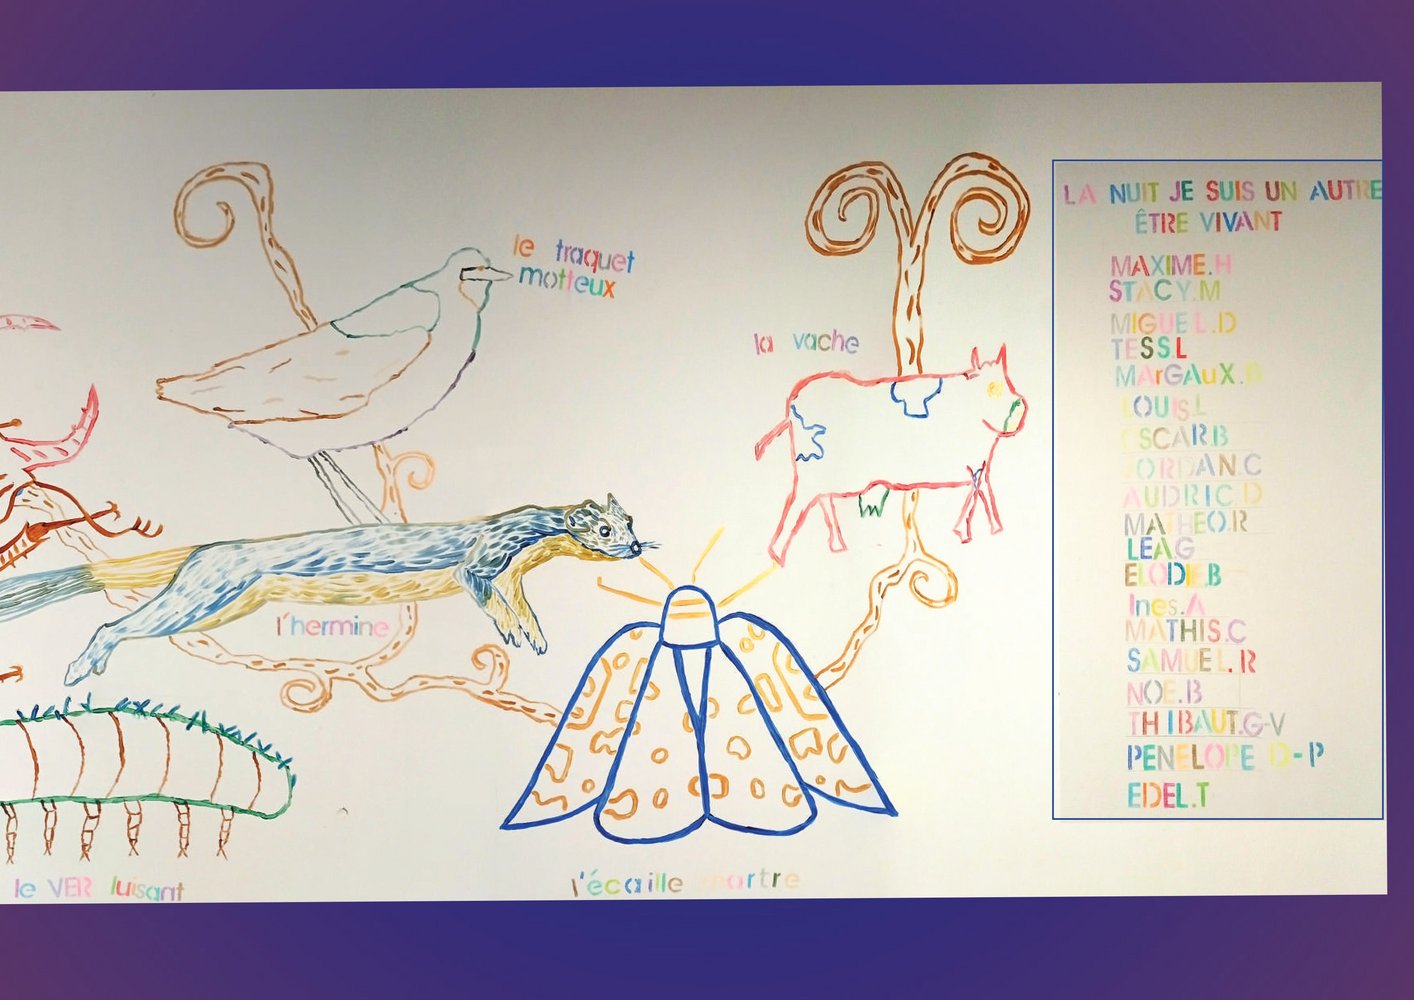 le traquet
motteux
la vache
l'hermine
le VER luisant
l'écaille martre
LA NUIT JE SUIS UN AUTRE
ÊTRE VIVANT
MAXIME.H
STACY.M
MIGUEL.D
TESS.L
MArGAuX.
LOUIS.L
OSCAR.B
JORDAN.C
AUDRIC.D
MATHEO.R
LEA.G
ELODIE.B
Ines.A
MATHIS.C
SAMUEL.R
NOE.B
THIBAUT.G-V
PENELOPE D-P
EDEL.T